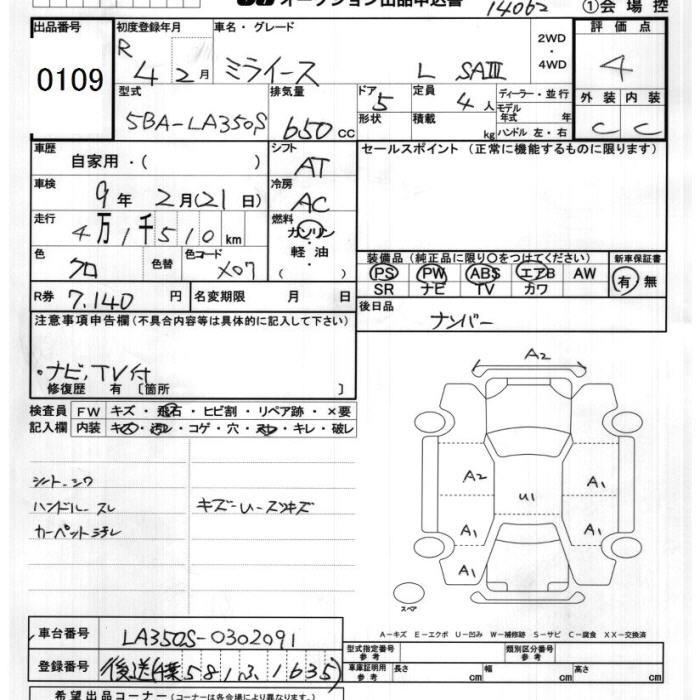 オークション出品申込書 14062 ①会場控
出品番号 0109
初度登録年月 R 4 2月
車名・グレード ミライース L SAⅢ
2WD・4WD
評価点 4
型式 5BA-LA350S
排気量 650 cc
ドア 5
形状
定員 4人
積載 kg
ディーラー・並行
モデル年式 年
ハンドル 左・右
外装 C 内装 C
車歴 自家用・( )
シフト AT
セールスポイント (正常に機能するものに限ります)
車検 9年 2月(21日)
冷房 AC
走行 4万1千510km
燃料 ガソリン・軽油・( )
色 クロ 色替 色コード X07
装備品 (純正品に限り○をつけてください) 新車保証書
PS PW ABS エアB AW 有・無
SR ナビ TV カワ
R券 7,140円 名変期限 月 日
後日品 ナンバー
注意事項申告欄 (不具合内容等は具体的に記入して下さい)
・ナビ,TV付
修復歴 有 〔箇所 〕
検査員記入欄 FW キズ・飛石・ヒビ割・リペア跡・×要
内装 キズ・汚レ・コゲ・穴・スレ・キレ・破レ
シート シワ
ハンドル スレ キズ-U-スリキズ
カーペット ヨゴレ
A2
A2 U1 A1
A1 A1
A1
スペア
A-キズ E-エクボ U-凹み W-補修跡 S-サビ C-腐食 XX-交換済
車台番号 LA350S-0302091
型式指定番号 類別区分番号
登録番号 後送(千葉581ふ1635)
車庫証明用参考 長さ cm 幅 cm 高さ cm
希望出品コーナー (コーナーは各会場により異なります。)